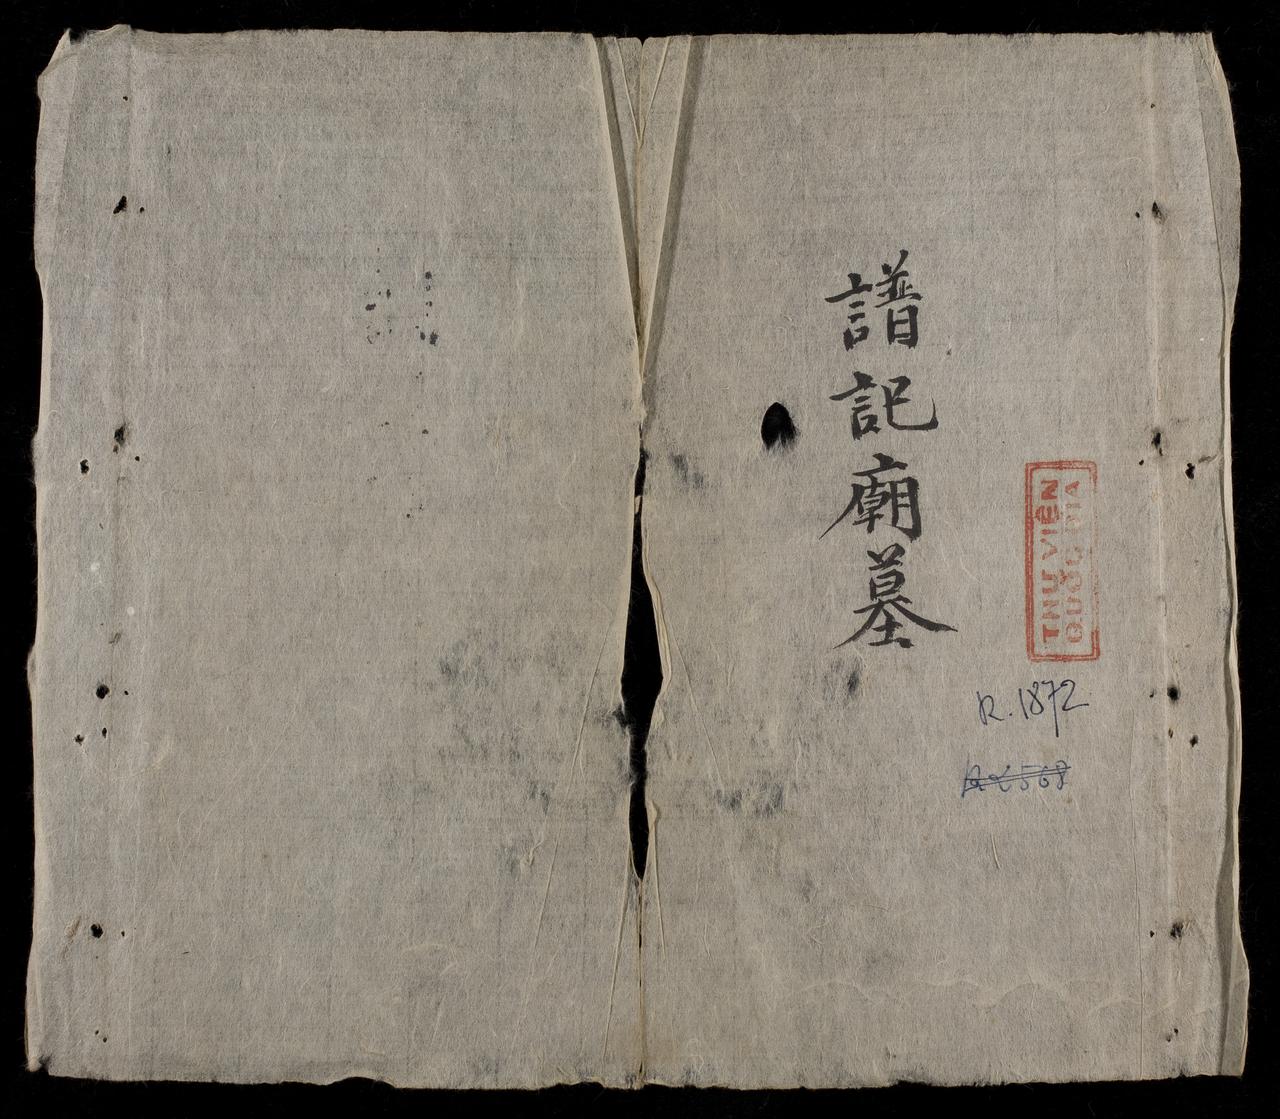 譜記廟墓
THƯ VIÊN
QUỐC GIA
R.1872